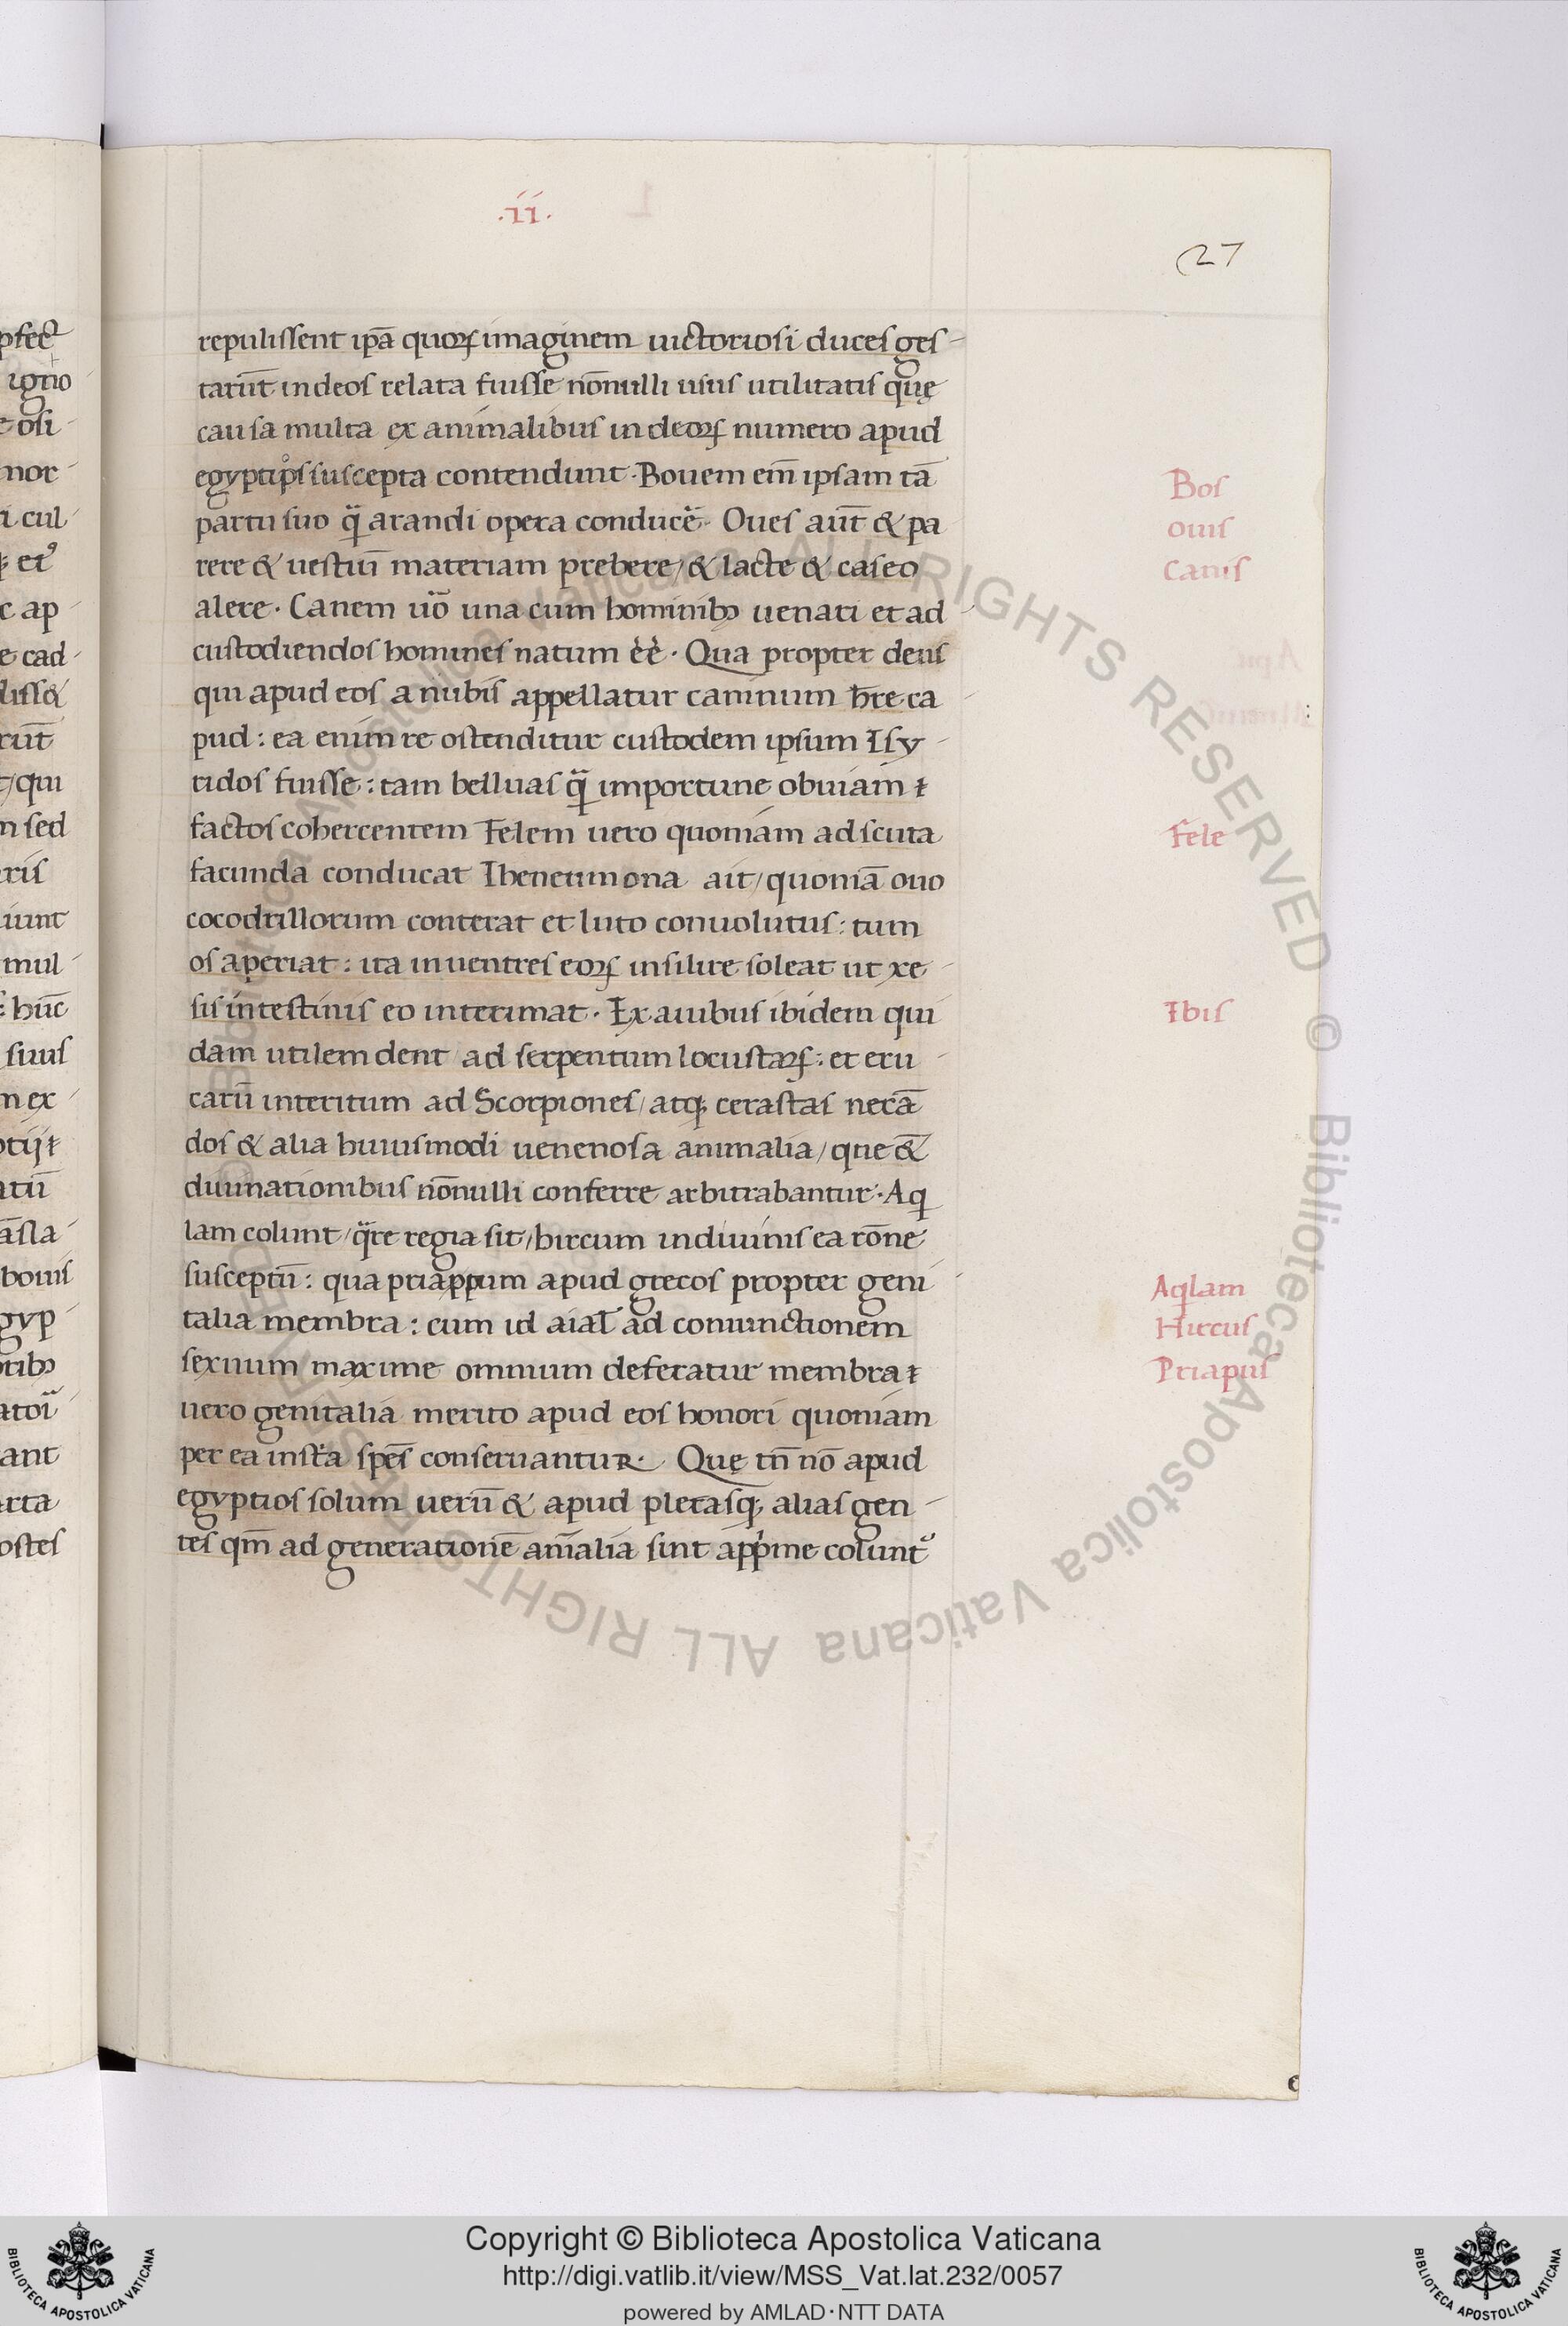 .ii.
27
repulissent ipā quoꝝ imaginem uictoriosi duces ges-
tarūt in deos relata fuisse nōnulli usus utilitatis quę
causa multa ex animalibus in deoꝝ numero apud
egyptios suscepta contendunt · Bouem em̄ ipsam tā
partu suo q̄ arandi opera conducē · Oues aut̄ & pa
rere & uestiū materiam prebere / & lacte & caseo
alere · Canem uō una cum hominibꝫ uenati et ad-
custodiendos homines natum ēē · Qua propter deus
qui apud eos anubis appellatur caninum hr̄e ca-
pud : ea enim re ostenditur custodem ipsum Isy-
ridos fuisse : tam belluas q̄ importune obuiam ł
factos cohercentem Felem uero quoniam ad scuta
facunda conducat Iheneumona ait / quoniā ouo
cocodrillorum conterat et luto conuolutus : tum
os aperiat : ita in uentres eoꝝ insilire soleat ut xe-
sis intestinis eo interimat · Ex auibus ibidem qui
dam utilem dent ad serpentum locustaꝝ : et eru-
carū interitum ad Scorpiones / atqꝫ cerastas necā
dos & alia huiusmodi uenenosa animalia / que &
diuinationibus nōnulli conferre arbitrabantur · Aq̇
lam colunt / q̄re regia sit / hircum in diuinis ea rōne
susceptū : qua priappum apud grecos propter geni-
talia membra : cum id aīal ad coniunctionem
sexuum maxime omnium deferatur membra ł
uero genitalia merito apud eos honori quoniam
per ea insta spēs conseruantur · Quę tn̄ nō apud
egyptios solum uerū & apud plerasqꝫ alias gen-
tes qm̄ ad generationē anīalia sint app̍me colunt᷑
Bos
ouis
Canis
Fele
Ibis
Aqlam
Hircus
Priapus
pfect
ignio
e osi-
mor-
i cul-
et
c ap
e cad-
diss&
rūt
t / qui
m sed
ris
iunt
mul-
: hūc
suus
m ex-
ptij ł
atū
āsla-
bouis
gyp-
tibꝫ
atoī
ant
rta
ostes
© Biblioteca Apostolica Vaticana ALL RIGHTS RESERVED
© Biblioteca Apostolica Vaticana ALL RIGHTS RESERVED
BIBLIOTECA APOSTOLICA VATICANA
Copyright © Biblioteca Apostolica Vaticana
http://digi.vatlib.it/view/MSS_Vat.lat.232/0057
powered by AMLAD·NTT DATA
BIBLIOTECA APOSTOLICA VATICANA